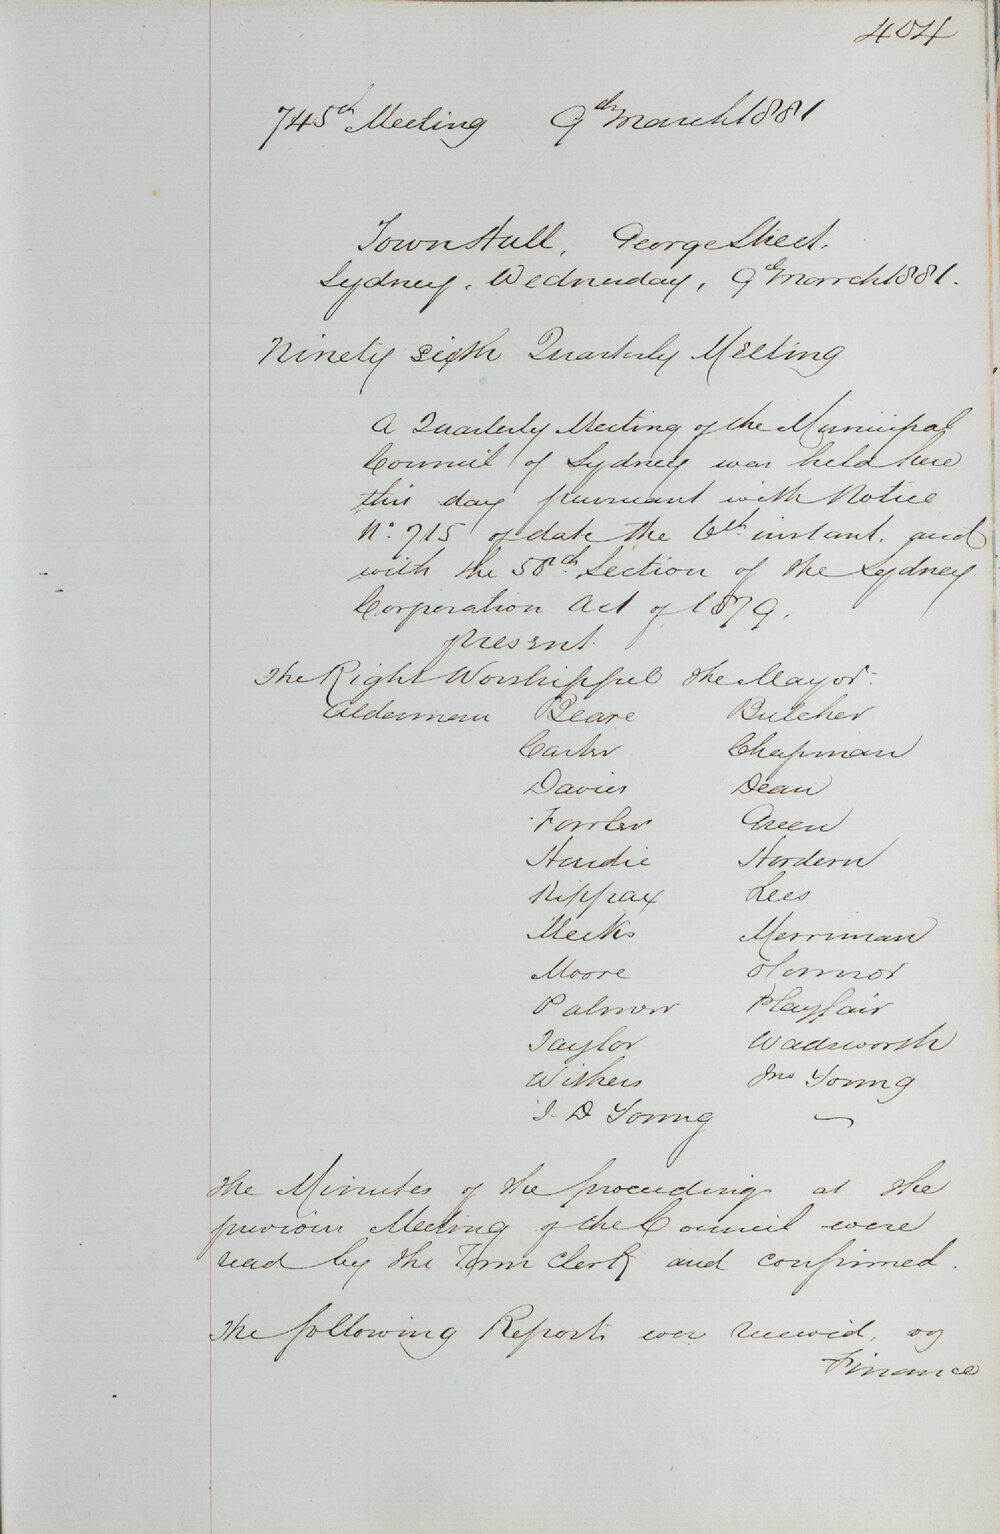 404
745th Meeting 9th March 1881
Town Hall, George Street.
Sydney, Wednesday, 9th March 1881.
Ninety sixth Quarterly Meeting
A Quarterly Meeting of the Municipal
Council of Sydney was held here
this day pursuant with Notice
No. 715 of date the 6th instant. and
with the 58th Section of the Sydney
Corporation Act of 1879.
present
The Right Worshipful the Mayor.
Aldermen Beare Butcher
Carter Chapman
Davies Dean
Fowler Green
Hardie Hordern
Kippax Lees
Meeks Merriman
Moore O'Connor
Palmer Playfair
Taylor Wadsworth
Withers Jno Young
J. D Young
The Minutes of the proceedings at the
previous Meeting of the Council were
read by the Town Clerk and confirmed.
The following Reports were received, vz
Finance